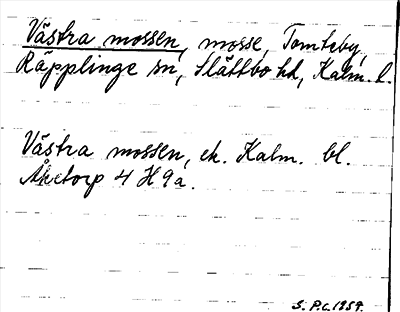 Västra mossen, mosse, Tomteby,
Räpplinge sn, Slättbo hd, Kalm. l.
Västra mossen, ek. Kalm. bl.
Åketorp 4 H 9a.
S. P.C. 1959.